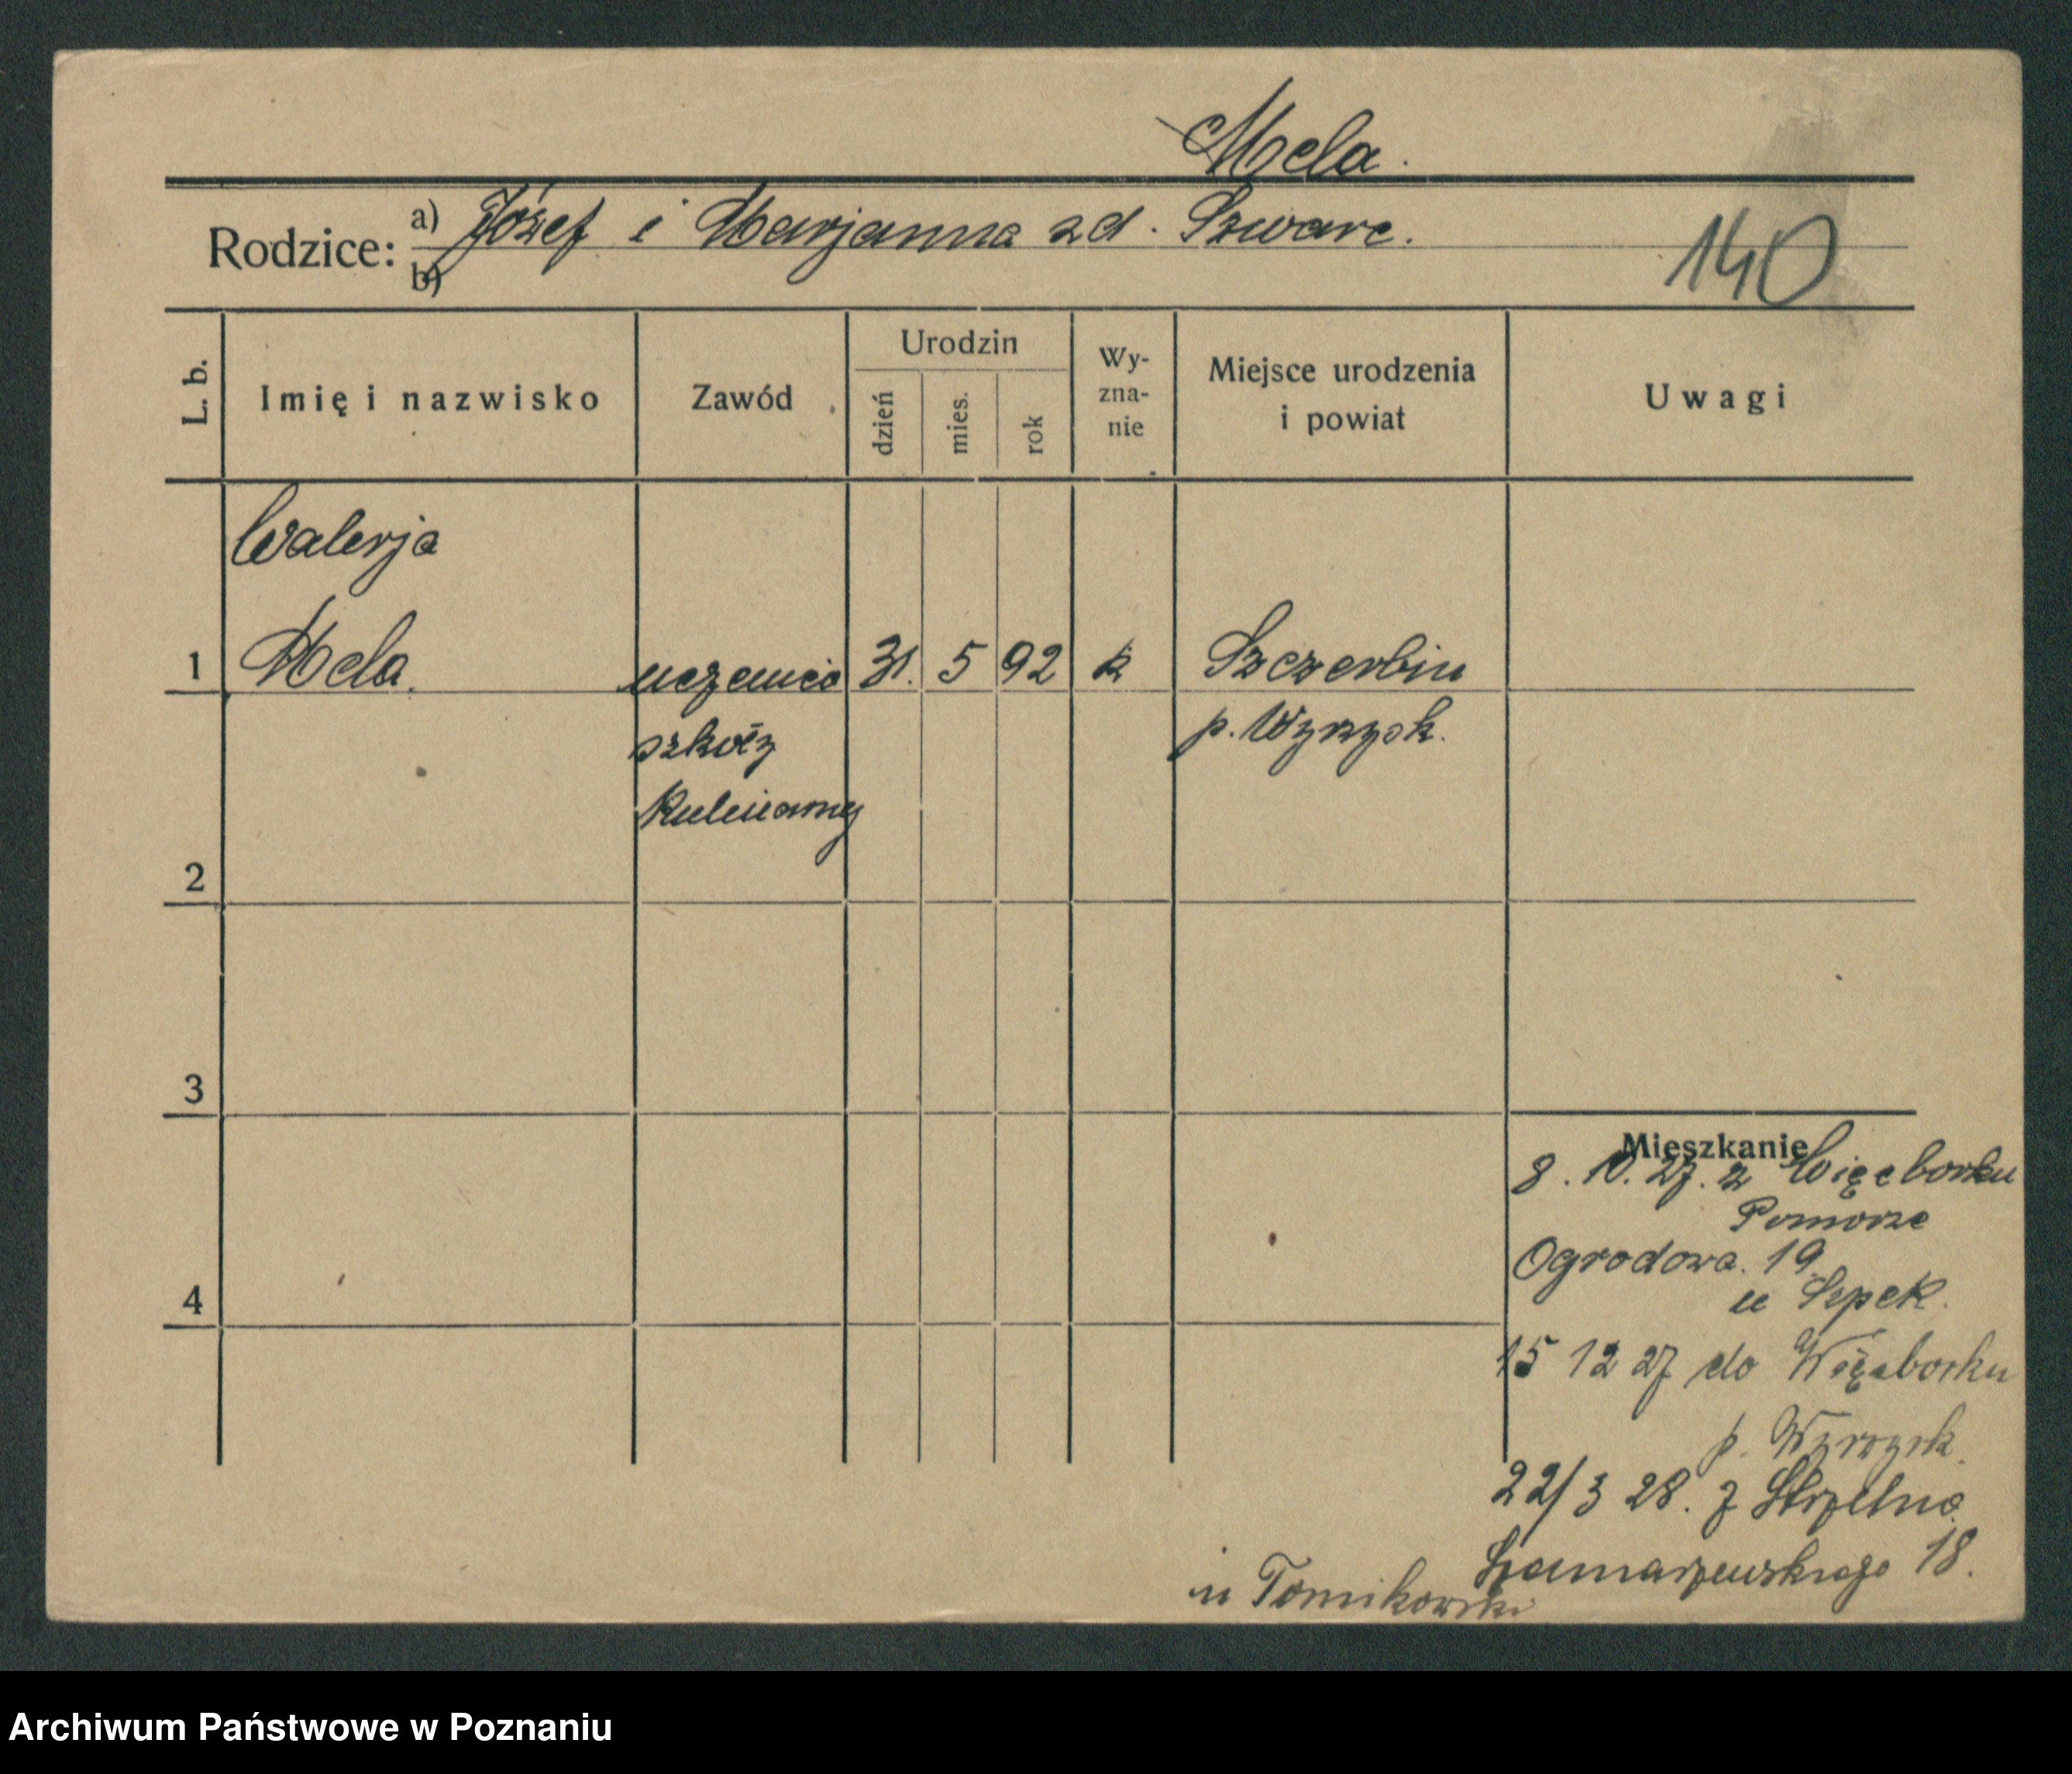 Mela.
Rodzice: a) Józef i Marjanna zd. Szwarc.
b)
140
L. b.
Imię i nazwisko
Zawód
Urodzin
dzień
mies.
rok
Wy-
zna-
nie
Miejsce urodzenia
i powiat
Uwagi
Walerja
1 Mela. uczenica 31. 5 92 k Szczerbin
szkoły p. Wyrzysk.
kulinarnej
2
3
4
Mieszkanie
8. 10. 27. z Więcborku
Pomorze
Ogrodowa. 19
u Szpek.
15 12 27 do Więcborku
p. Wyrzysk.
22/3 28. z Strzelna
Szamarzewskiego 18.
u Tomikowski
Archiwum Państwowe w Poznaniu